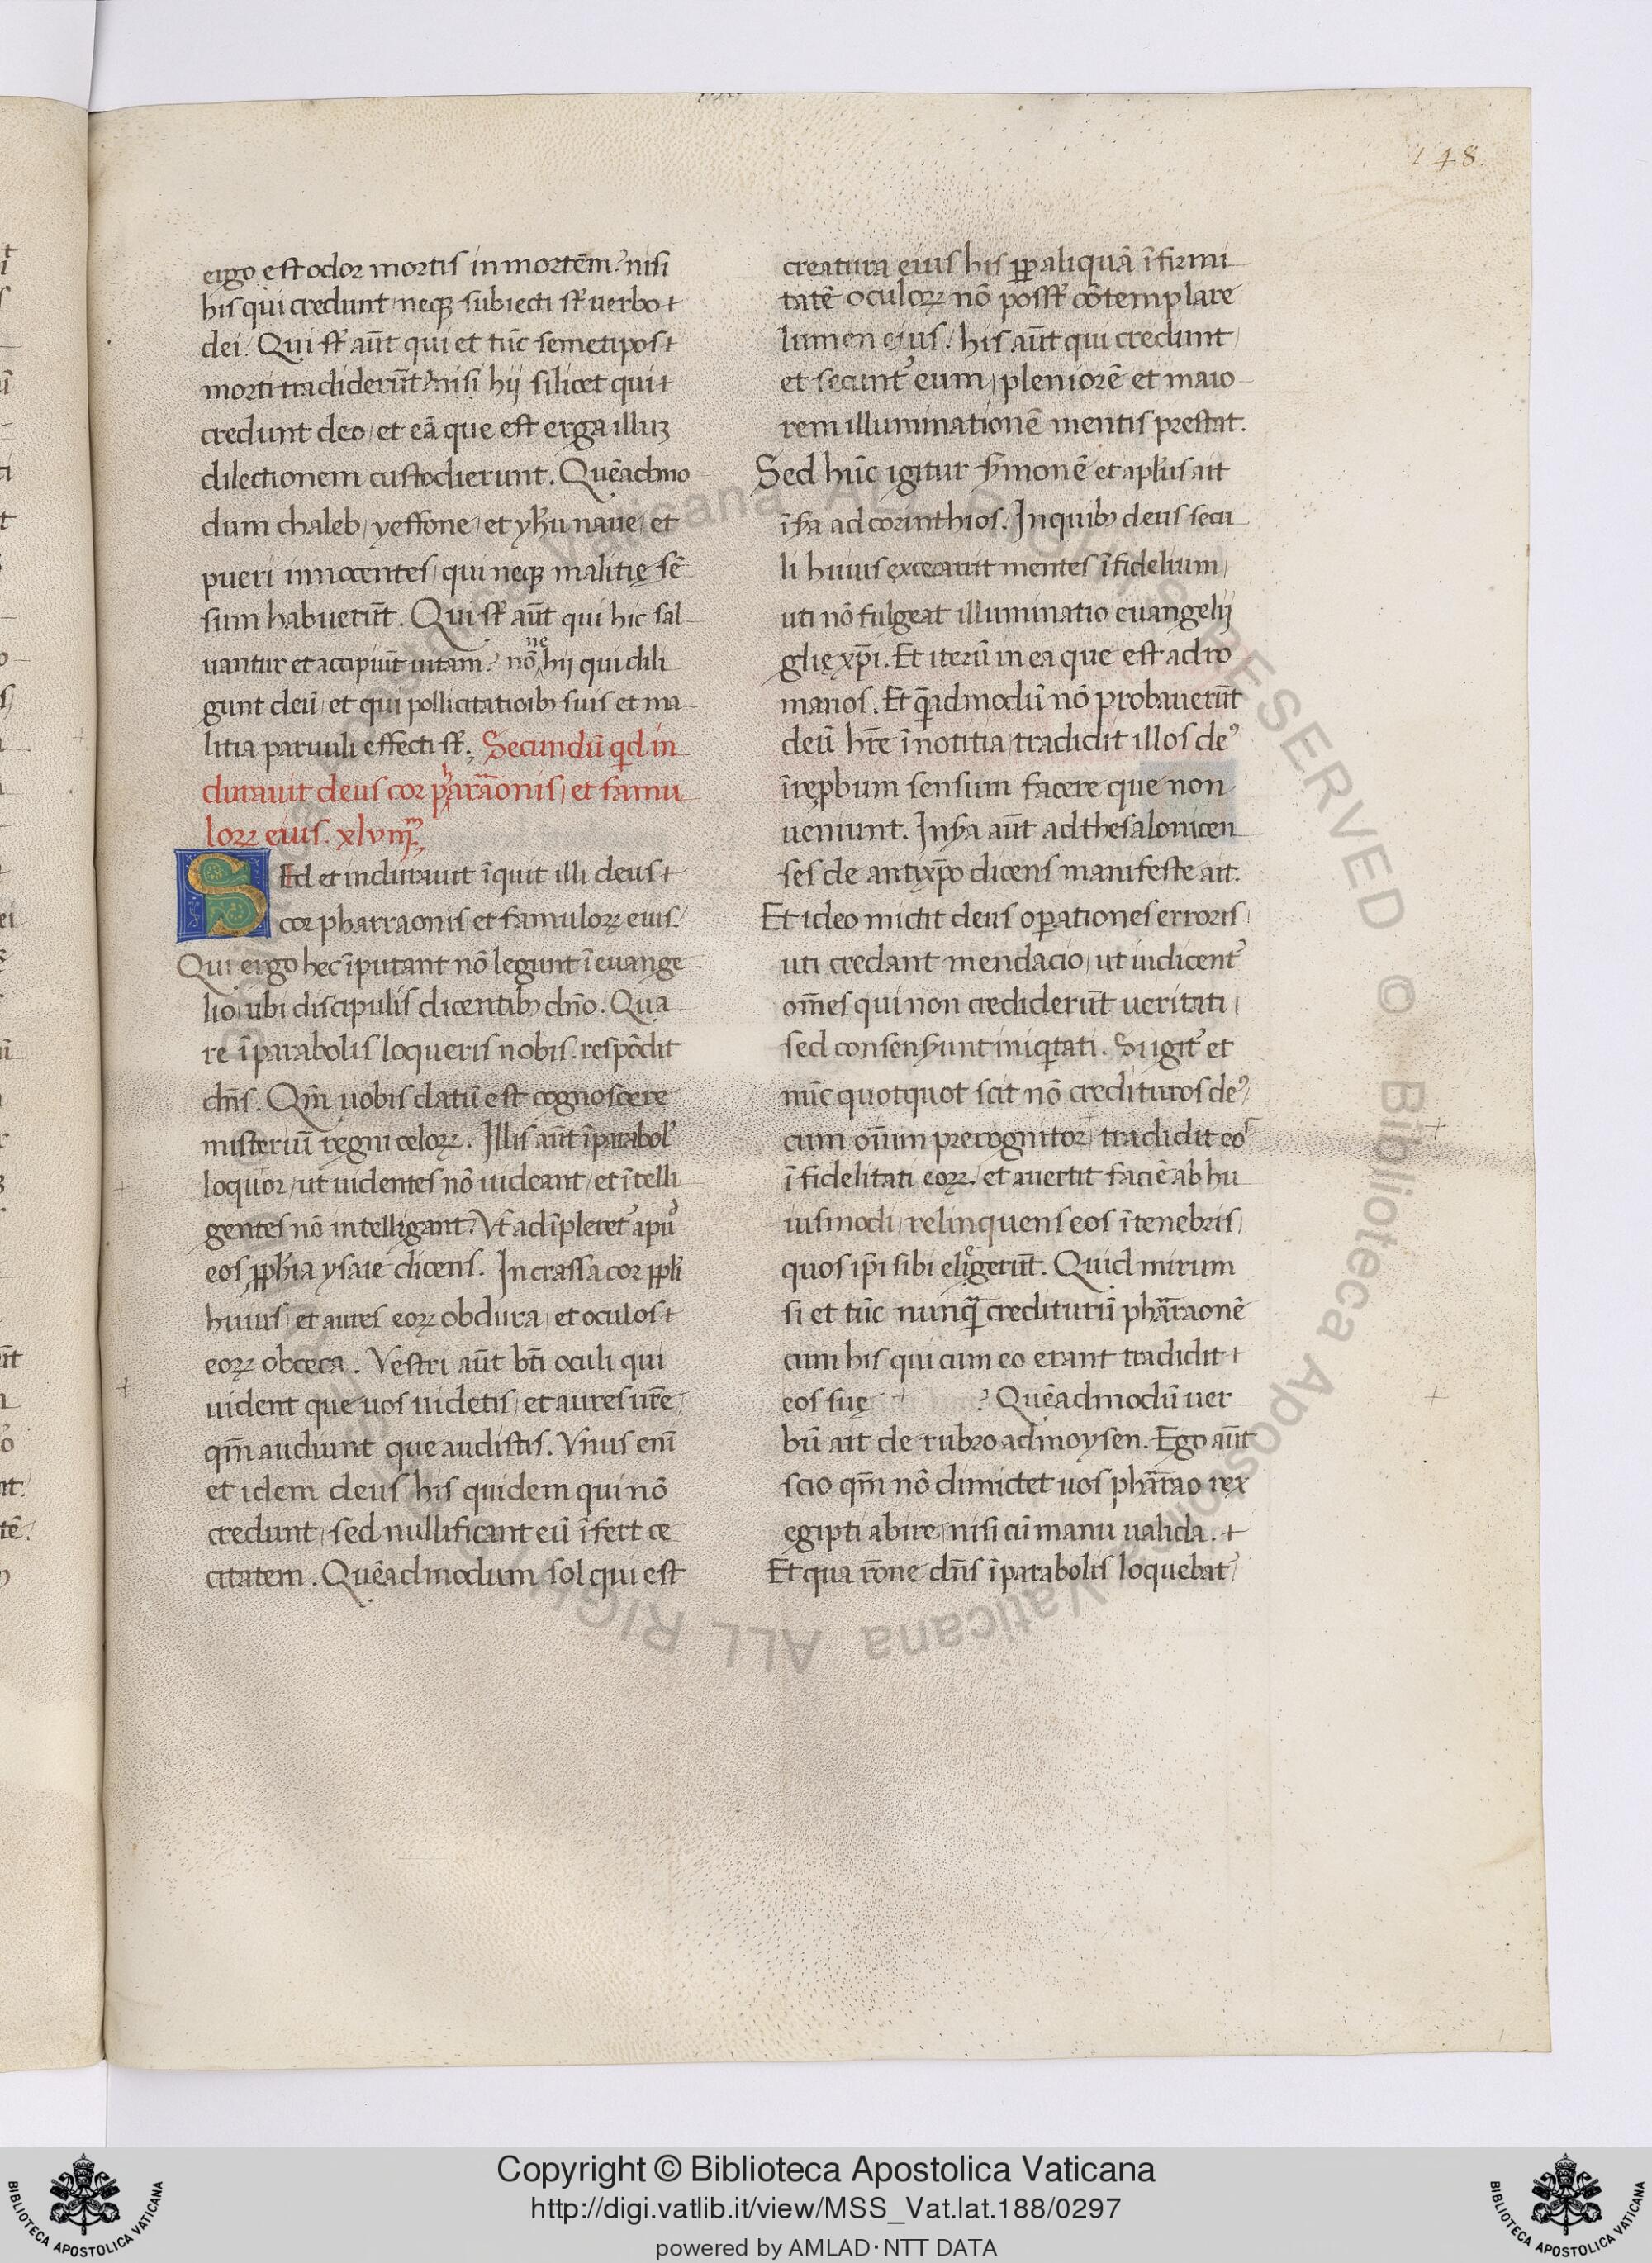 148.
ergo est odor mortis in mortem̄? nisi
his qui credunt neqȝ subiecti st̄ uerbo
dei. Qui st̄ aūt qui et tūc semetipos
morti tradiderūt? nisi hij silicet qui
credunt deo, et eā que est erga illuȝ
dilectionem custodierunt. Quēadmo
dum chaleb, yeffone, et yhu naue, et
pueri innocentes, qui neqȝ malitię sē
sum habuerūt. Qui st̄ aūt qui hic sal
uantur et accipiūt uitam? nō ne hij qui dili
gunt deū, et qui pollicitatioibȝ suis et ma
litia paruuli effecti st̄; Secundū qd in
durauit deus cor pharāonis, et famu
loꝝ eius. xlviiij.
SEd et indurauit īquit illi deus
cor pharraonis, et famuloꝝ eius.
Qui ergo hec īputant nō legunt ī euange
lio, ubi discipulis dicentibȝ dn̄o. Qua
re ī parabolis loqueris nobis. respōdit
dn̄s. Qm̄ uobis datū est cognoscere
misteriū regni celoꝝ. Illis aūt ī parabol'
loquor, ut uidentes nō uideant, et ītelli
gentes nō intelligant? Vt adīpleret' apu'
eos ꝓphīa ysaie dicens. In crassa cor ppli
huius, et aures eoꝝ obdura, et oculos
eoꝝ obceca. Vestri aūt bt̄i oculi qui
uident que uos uidetis, et aures ur̄e,
qm̄ audiunt que audistis. Vnus enī
et idem deus, his quidem qui nō
credunt, sed nullificant eū īfert ce
citatem. Quēadmodum sol qui est
creatura eius his ꝓp aliquā īfirmi
tatē oculoꝝ nō posst̄ cōtemplare
lumen eius. his aūt qui credunt,
et secunt' eum, pleniorē et maio
rem illuminationē mentis prestat.
Sed hūc igitur s̄monē et aplus ait
īsȝa ad corinthios. In quibȝ deus secu
li huius excecauit mentes īfidelium,
uti nō fulgeat illuminatio euangelij
glię xp̄i. Et iterū in ea que est ad ro
manos. Et q̄admodū nō probauerūt
deū hr̄e ī notitia, tradidit illos de'
īrepbum sensum facere que non
ueniunt. In sȝa aūt ad thesalonicen
ses de antyxp̄o dicens manifeste ait.
Et ideo mictit deus opationes erroris,
uti credant mendacio, ut iudicent'
om̄es qui non crediderūt ueritati,
sed consensȝunt iniqtati. Si igit' et
nūc quotquot scit nō credituros de',
cum oīum precognitor, tradidit eos
īfidelitati eoꝝ. et auertit faciē ab hu
iusmodi, relinquens eos ī tenebris,
quos ip̄i sibi eligerūt. Quid mirum
si et tūc nunq̄ crediturū phārraonē
cum his qui cum eo erant tradidit
eos suę ? Quēadmodū uer
bū ait de rubro ad moysen. Ego aūt
scio qm̄ nō dimictet uos phārrao rex
egipti abire, nisi cū manu ualida.
Et qua rōne dn̄s ī parabolis loquebat'
Copyright © Biblioteca Apostolica Vaticana
http://digi.vatlib.it/view/MSS_Vat.lat.188/0297
powered by AMLAD·NTT DATA
BIBLIOTECA APOSTOLICA VATICANA
BIBLIOTECA APOSTOLICA VATICANA